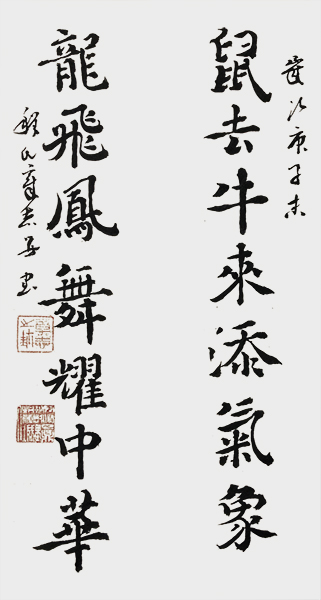 歲次庚子末
鼠去牛來添氣象
龍飛鳳舞耀中華